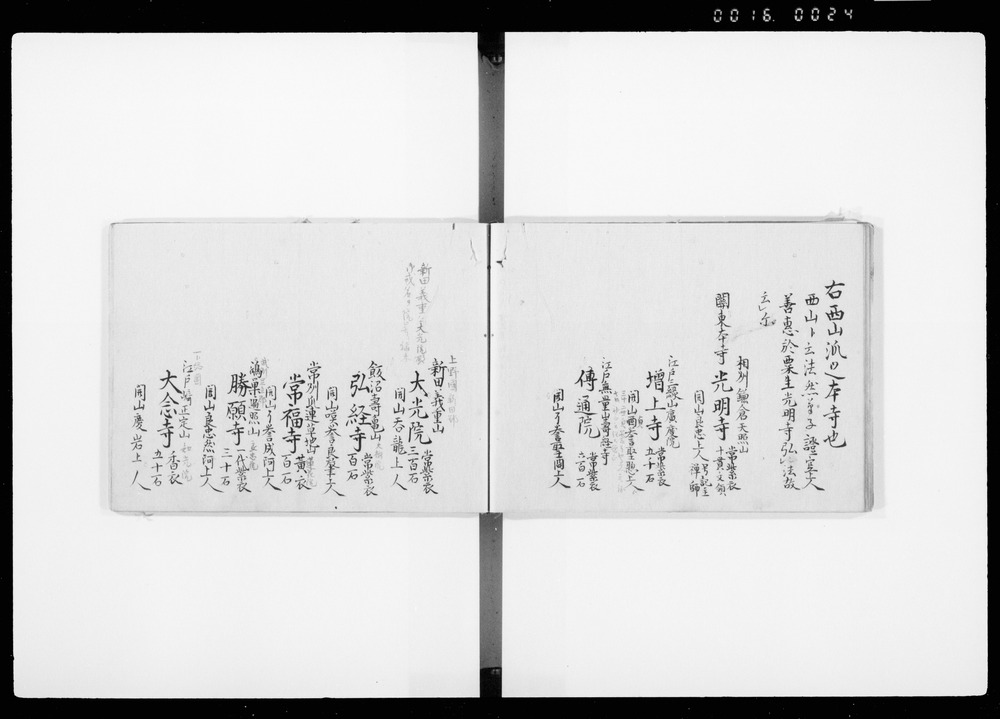 0016 0024
右西山派之本寺也
西山ト立法然ノ弟子證空上人
善惠於粟生光明寺弘法故
云爾
相州鎌倉天照山
關東本寺 光明寺 常紫衣 十貫文領
開山良忠上人 号記主禪師
江戸三縁山廣度院
増上寺 常紫衣 五十石
開山酉誉聖聰上人
江戸無量山壽経寺
傳通院 常紫衣 六百石
開山了誉聖冏上人
新田義重 大光院
上野國新田
新田義重山
大光院 常紫衣 三百石
開山呑龍上人
飯沼壽亀山
弘経寺 常紫衣 百石
開山嘆誉良肇上人
常州 草地山
常福寺 黄衣 百石
開山了誉成阿上人
鴻巣 照山
勝願寺 一代紫衣 三十石
開山良忠然阿上人
下総國
江戸崎正定山知光院
大念寺 香衣 五十石
開山慶岩上人